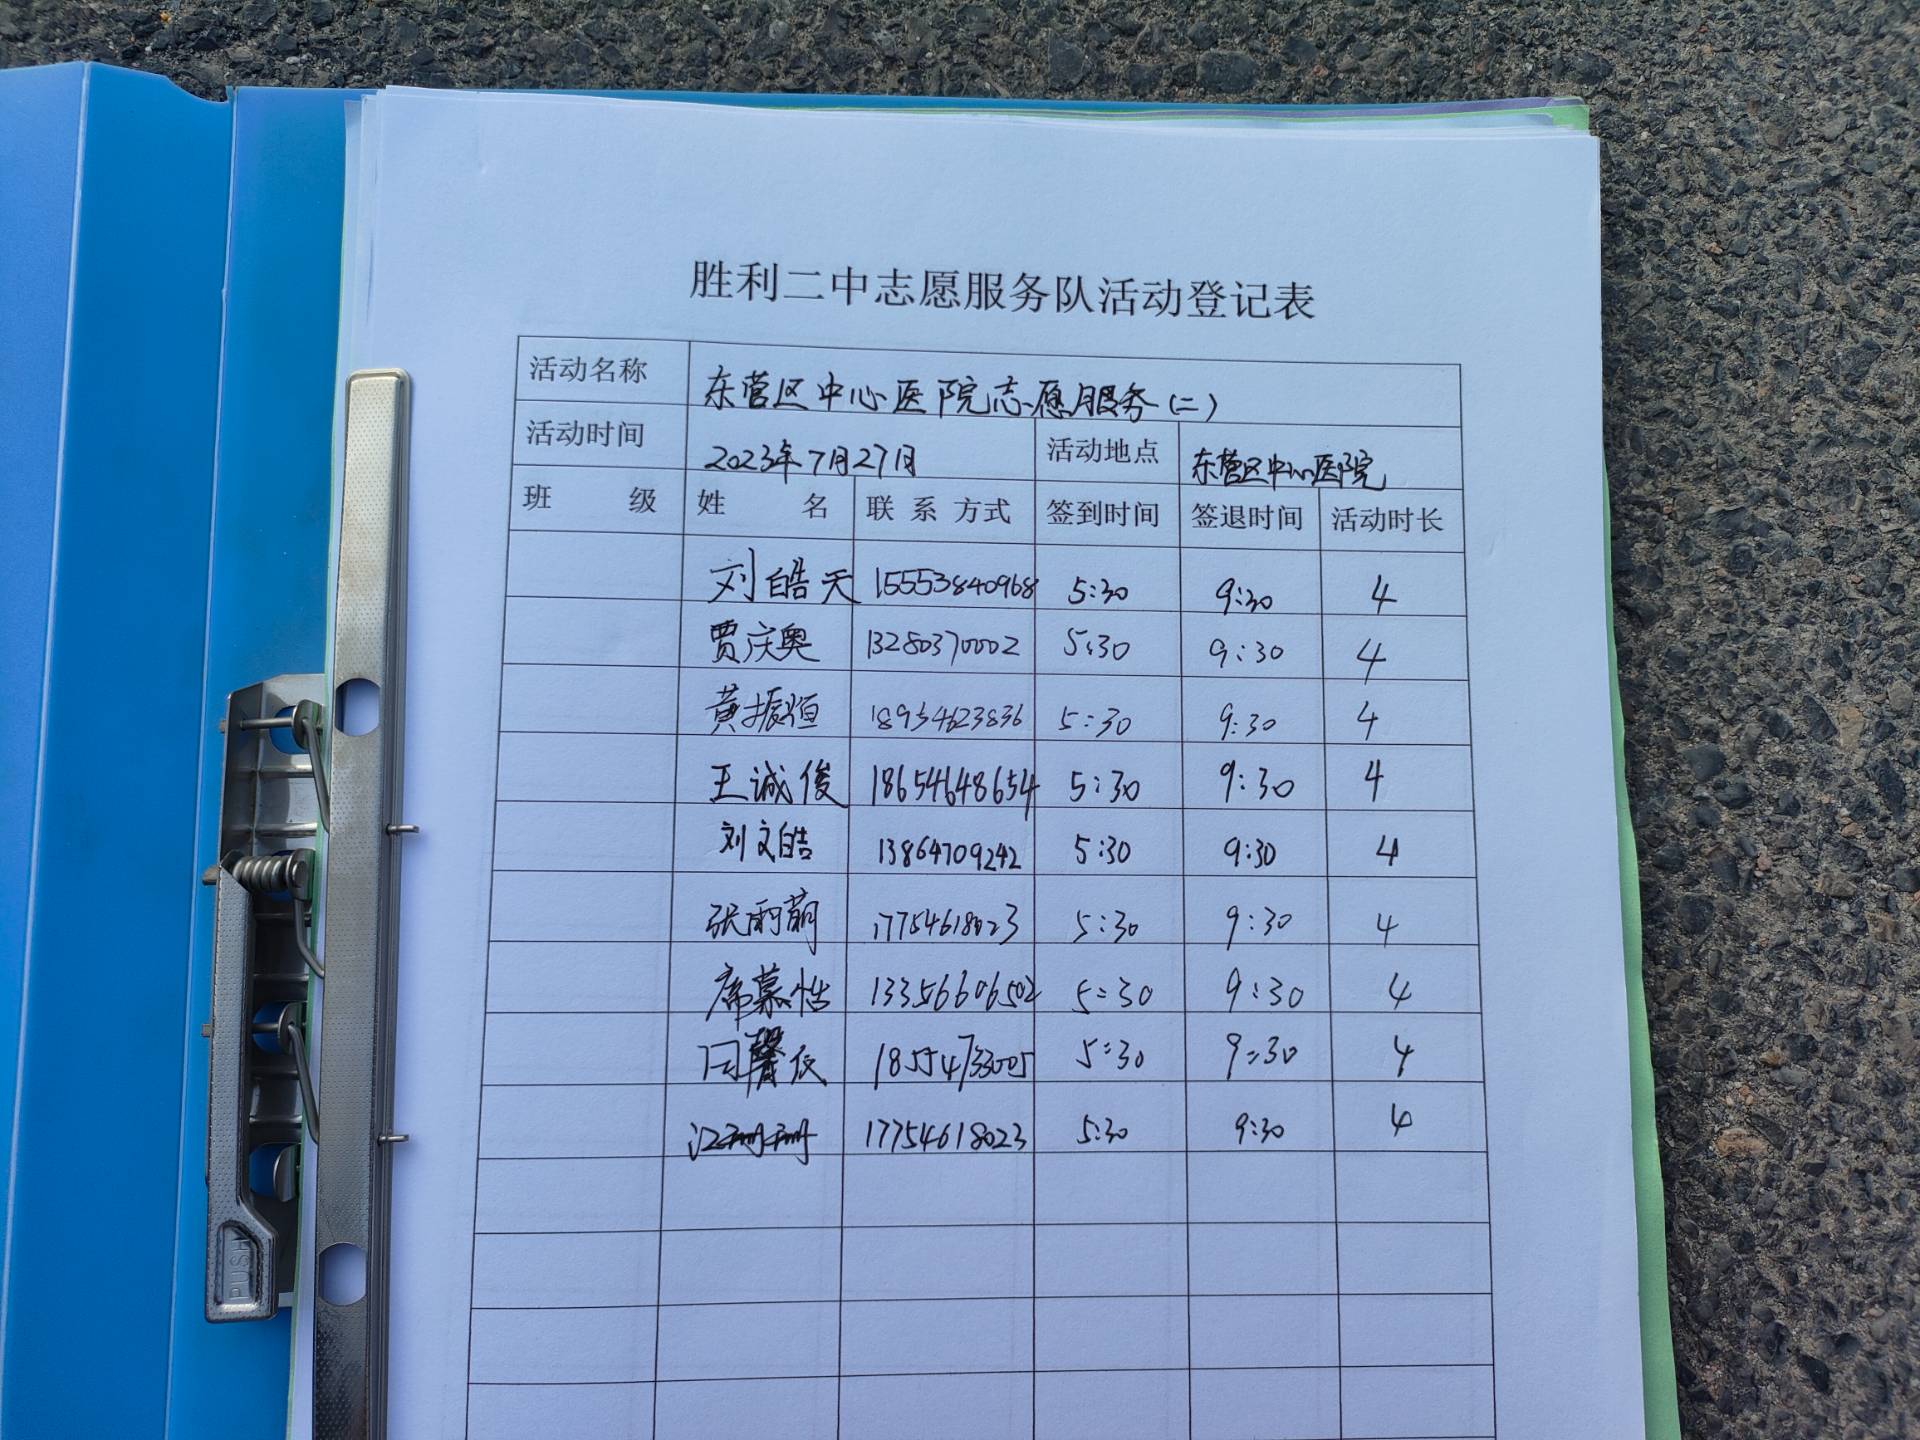 胜利二中志愿服务队活动登记表
活动名称 东营区中心医院志愿服务(二)
活动时间 2023年7月27日 活动地点 东营区中心医院
班 级 姓 名 联系方式 签到时间 签退时间 活动时长
刘皓天 15553840968 5:30 9:30 4
贾庆奥 13280370002 5:30 9:30 4
黄振恒 18954623836 5:30 9:30 4
王诚俊 18654648654 5:30 9:30 4
刘文皓 13864709242 5:30 9:30 4
张雨萌 17754618023 5:30 9:30 4
席慕恬 13356606502 5:30 9:30 4
闫馨辰 18554733005 5:30 9:30 4
江珊珊 17754618023 5:30 9:30 4
PUSH